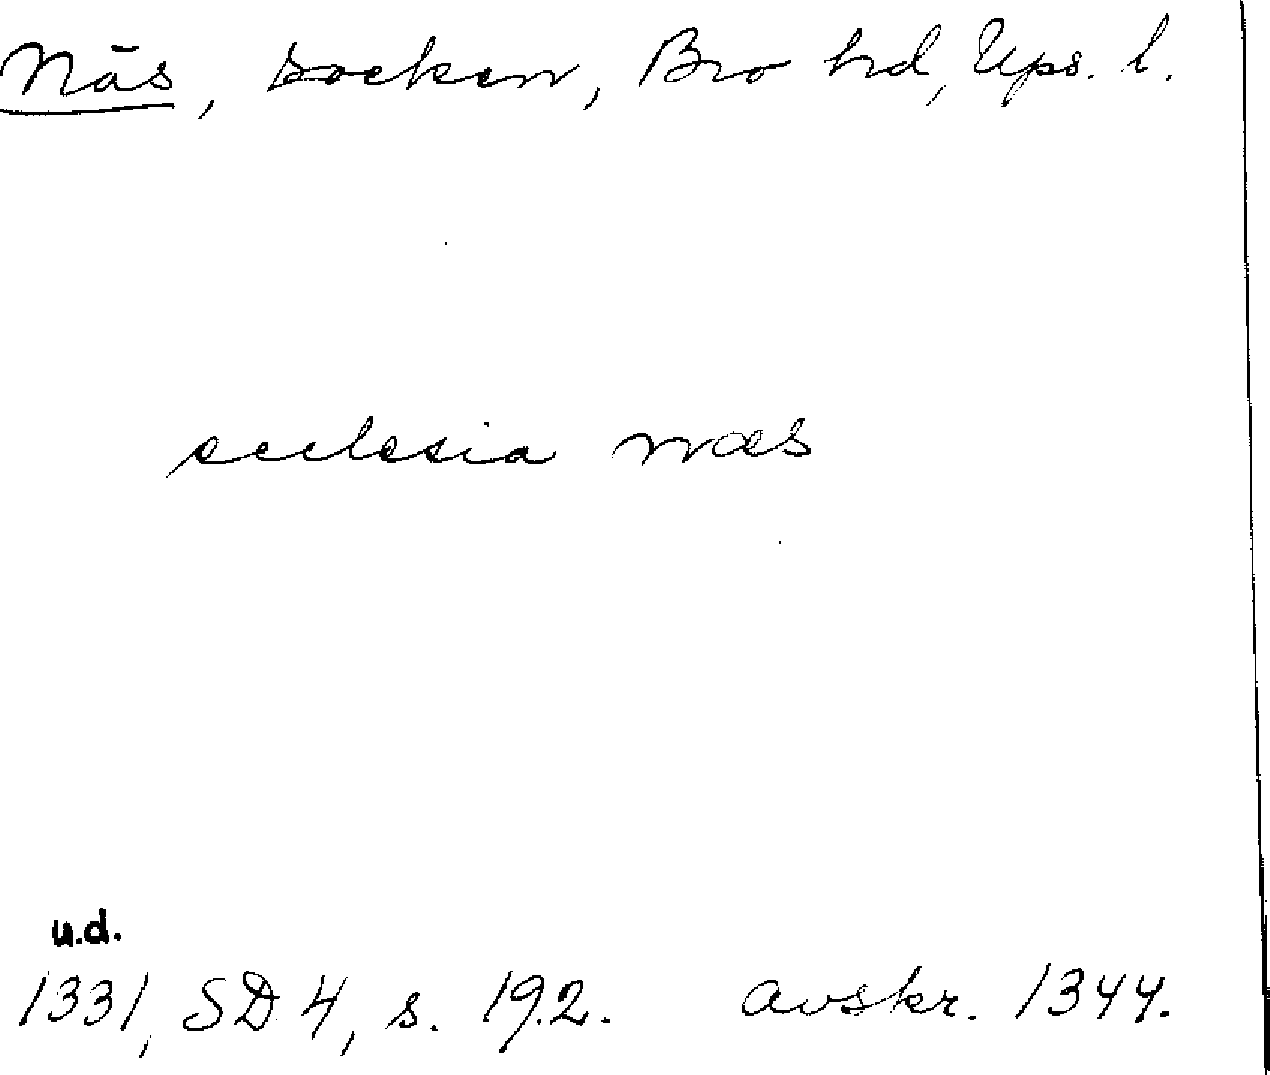 Näs, socken, Bro hd, Ups. l.
ecclesia næs
u.d.
1331, SD 4, s. 192. avskr. 1344.